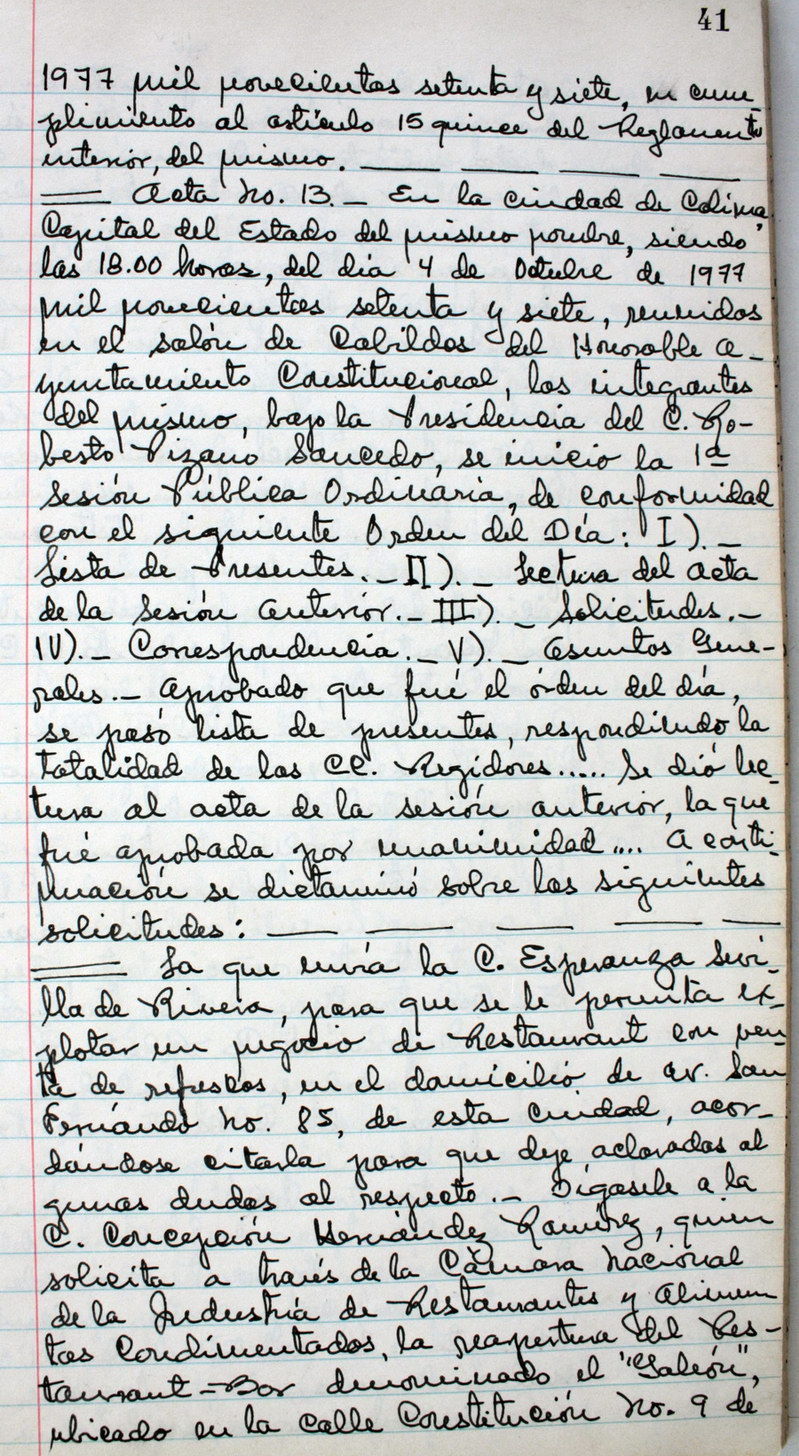 41
1977 mil novecientos setenta y siete, en cum-
plimiento al artículo 15 quince del Reglamento
interior, del mismo. — — — —
== Acta No. 13.- En la ciudad de Colima,
Capital del Estado del mismo nombre, siendo
las 18.00 horas, del día 4 de Octubre de 1977
mil novecientos setenta y siete, reunidos
en el salón de Cabildos del Honorable A-
yuntamiento Constitucional, los integrantes
del mismo, bajo la Presidencia del C. Ro-
berto Pizano Saucedo, se inicio la 1a
Sesión Pública Ordinaria, de conformidad
con el siguiente Orden del Día: I).-
Lista de Presentes.- II).- Lectura del acta
de la Sesión anterior.- III).- Solicitudes.-
IV).- Correspondencia.- V).- Asuntos Gene-
rales.- Aprobado que fué el órden del día,
se pasó lista de presentes, respondiendo la
totalidad de los CC. Regidores..... Se dió lec-
tura al acta de la sesión anterior, la que
fué aprobada por unanimidad.... A conti-
nuación se dictaminó sobre las siguientes
solicitudes: — — — — —
== La que envía la C. Esperanza Sevi-
lla de Rivera, para que se le permita ex-
plotar un negocio de Restaurant con ven-
ta de refrescos, en el domicilio de av. San
Fernando No. 85, de esta ciudad, acor-
dándose citarla para que deje aclaradas al
gunas dudas al respecto.- Dígasele a la
C. Concepción Hernández Ramírez, quien
solicita a través de la Cámara Nacional
de la Industria de Restaurantes y Alimen
tos Condimentados, la reapertura del Res-
taurant-Bar denominado el "Galeón",
ubicado en la calle Constitución No. 9 de